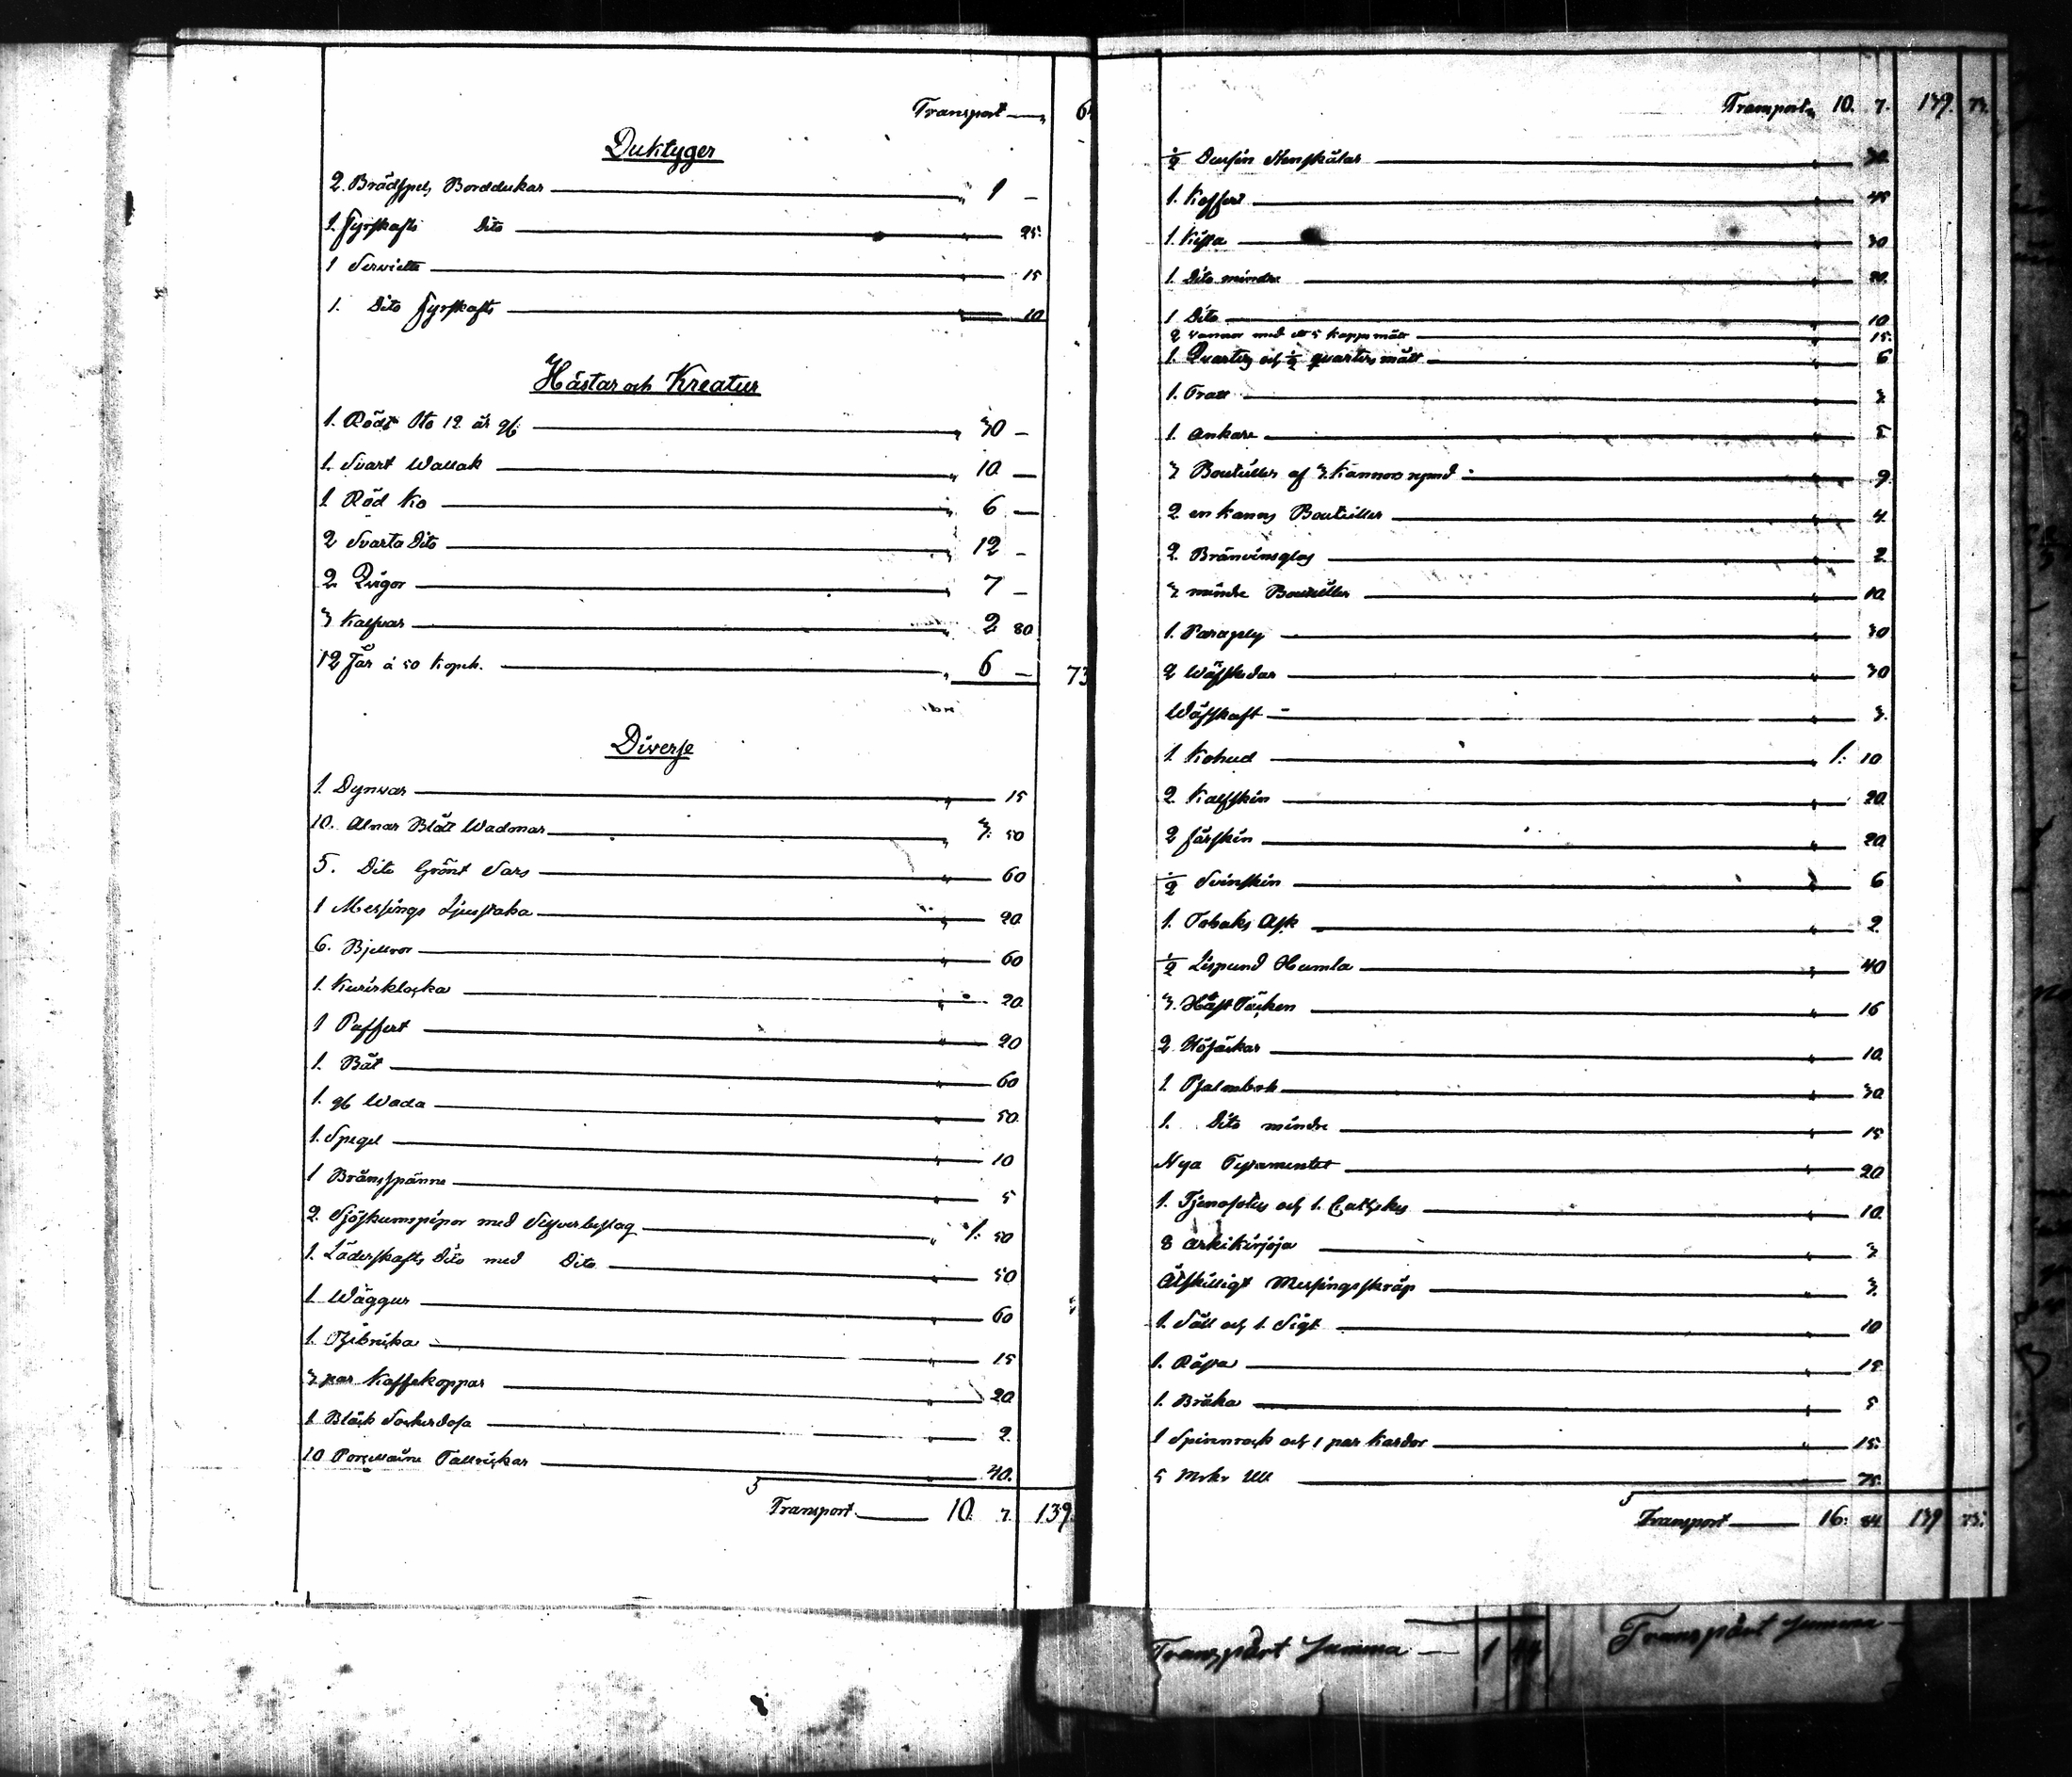 Transport — 6
Duktyger
2. Brädspels Borddukar — „ 1 —
1. Fyrskafts Dito — „ 25
1 Serviette — „ 15
1. Dito Fyrskafts — 10
Hästar och Kreatur
1. Rödt Sto 12 år gl. — „ 30 —
1. Svart Wallak — „ 10 —
1 Röd Ko — „ 6 —
2 Svarta Dito — „ 12 —
2 Qvigor — „ 7 —
3 Kalfvar — „ 2 80
12 Får á 50 Kopek. — „ 6 — 73
Diverse
1. Dynvar — „ 15
10. Alnar Blått Wadmar — „ 3. 50
5. Dito Grönt Sars — „ 60
1 Messings Ljusstaka — „ 20
6. Bjellror — „ 60
1. Kurirklocka — „ 20
1 Puffert — „ 20
1. Båt — „ 60
1. gl Wada — „ 50
1. Spegel — „ 10
1 Brännspänne — „ 5
2. Sjöskumspipor med Sylverbeslag — „ 1. 50
1. Läderskafts Dito med Dito — „ 50
1 Wäggur — „ 60
1. — „ 15
3 par Kaffekoppar — „ 20
1 Bläck Sockerdosa — „ 2.
10 Porcellaine Tallrickar — „ 40.
Transport — 10. 7. 139.
Transport „ 10. 7. 139. 73.
½ Dussin Stenskålar — „ 30
1. Koffert — „ 45
1. Kista — „ 30
1. Dito mindre — „ 20
1 Dito — „ 10
2 Kannor med ett 5 Kapps mått — „ 15.
1. Quarters och ½ quarters mått — „ 6
1. Tratt — „ 3.
1. Ankare — „ 5
3 Boutiller af 3 Kannors rymd — „ 9.
2 en kanns Boutiller — „ 4.
2. Bränvinsglas — „ 2
3 mindre Boutiller — „ 10
1. Paraply — „ 30
2 Wäfskedar — „ 30
Wäfskaft — „ 3.
1. Kohud — „ 1. 10
2. Kalfskin — „ 20
2 Fårskin — „ 20
½ Svinskin — „ 6
1. Tobaks Ask — „ 2.
½ Lispund Humla — „ 40
3. Häst Täcken — „ 16
2. Hösäckar — „ 10
1. Psalmbok — „ 30
1. Dito mindre — „ 15
Nya Testamentet — „ 20
1. och 1. — „ 10
8 Arkikirjoja — „ 3.
Åtskilligt Messingsskråp — „ 3.
1. Såll och 1. Sigt — „ 10
1. Råssa — „ 15
1. Bråka — „ 5
1 Spinnrock och 1 par Kardor — „ 15.
5 Mrkr Ull — 75.
Transport — 16. 84 139 73.
Transpårt Summa — 1 44
Transpårt Summa —